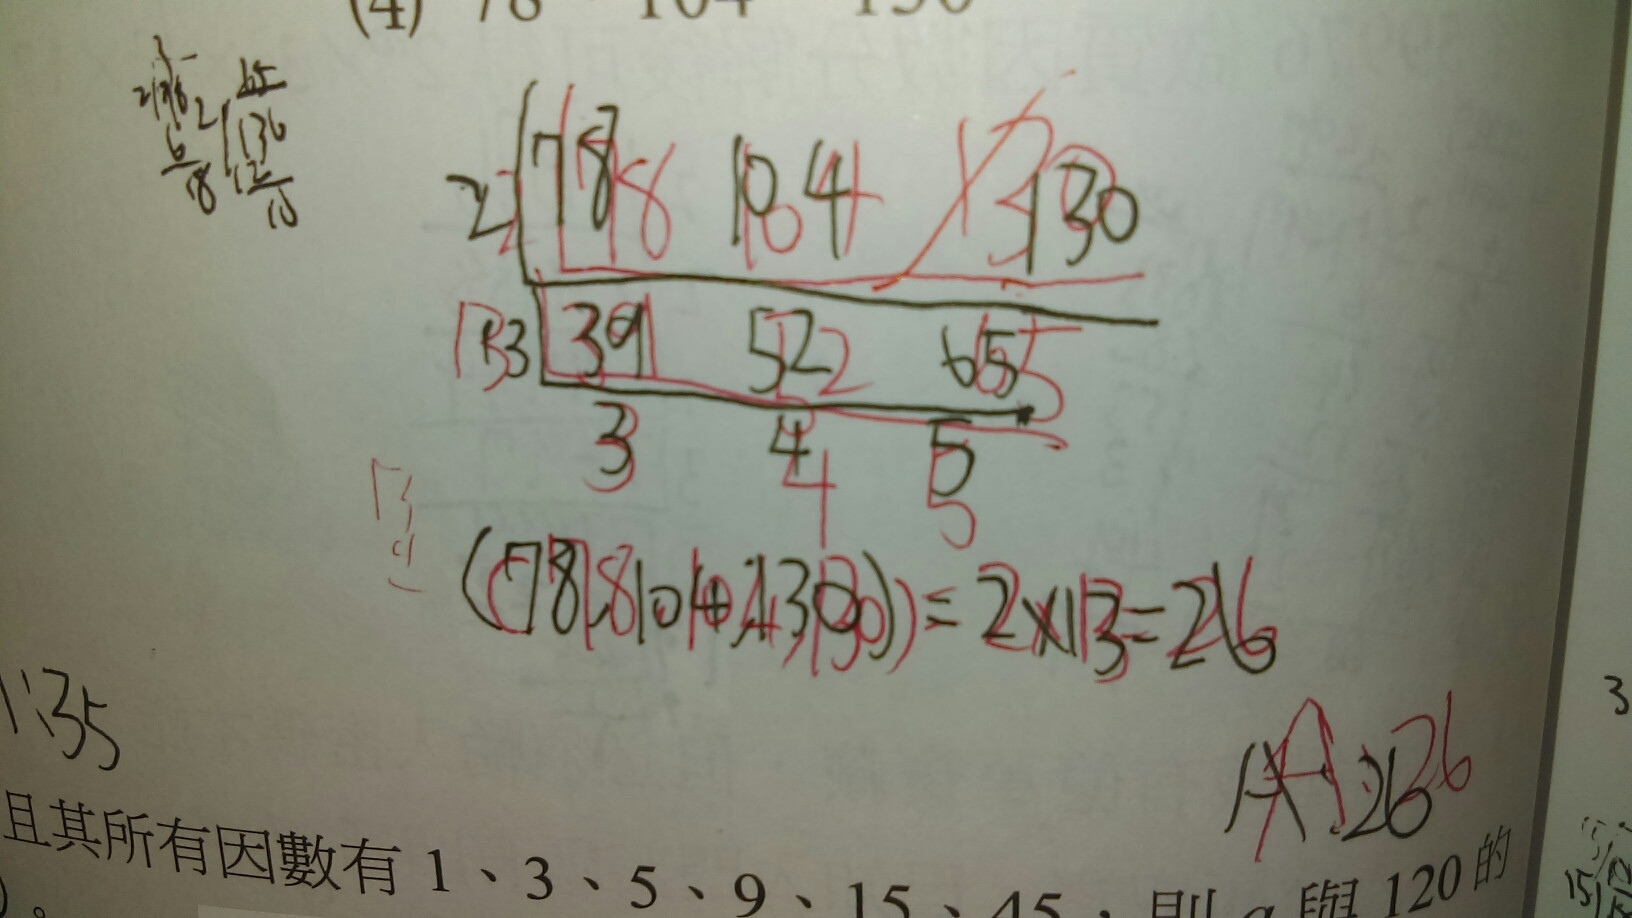 (4) 78、104、130
65
2 136
12
18 10
2 78 104 130
13 39 52 65
3 4 5
(78,104,130)=2×13=26
1:35
A:26
3
且其所有因數有 1、3、5、9、15、45,則 a 與 120 的